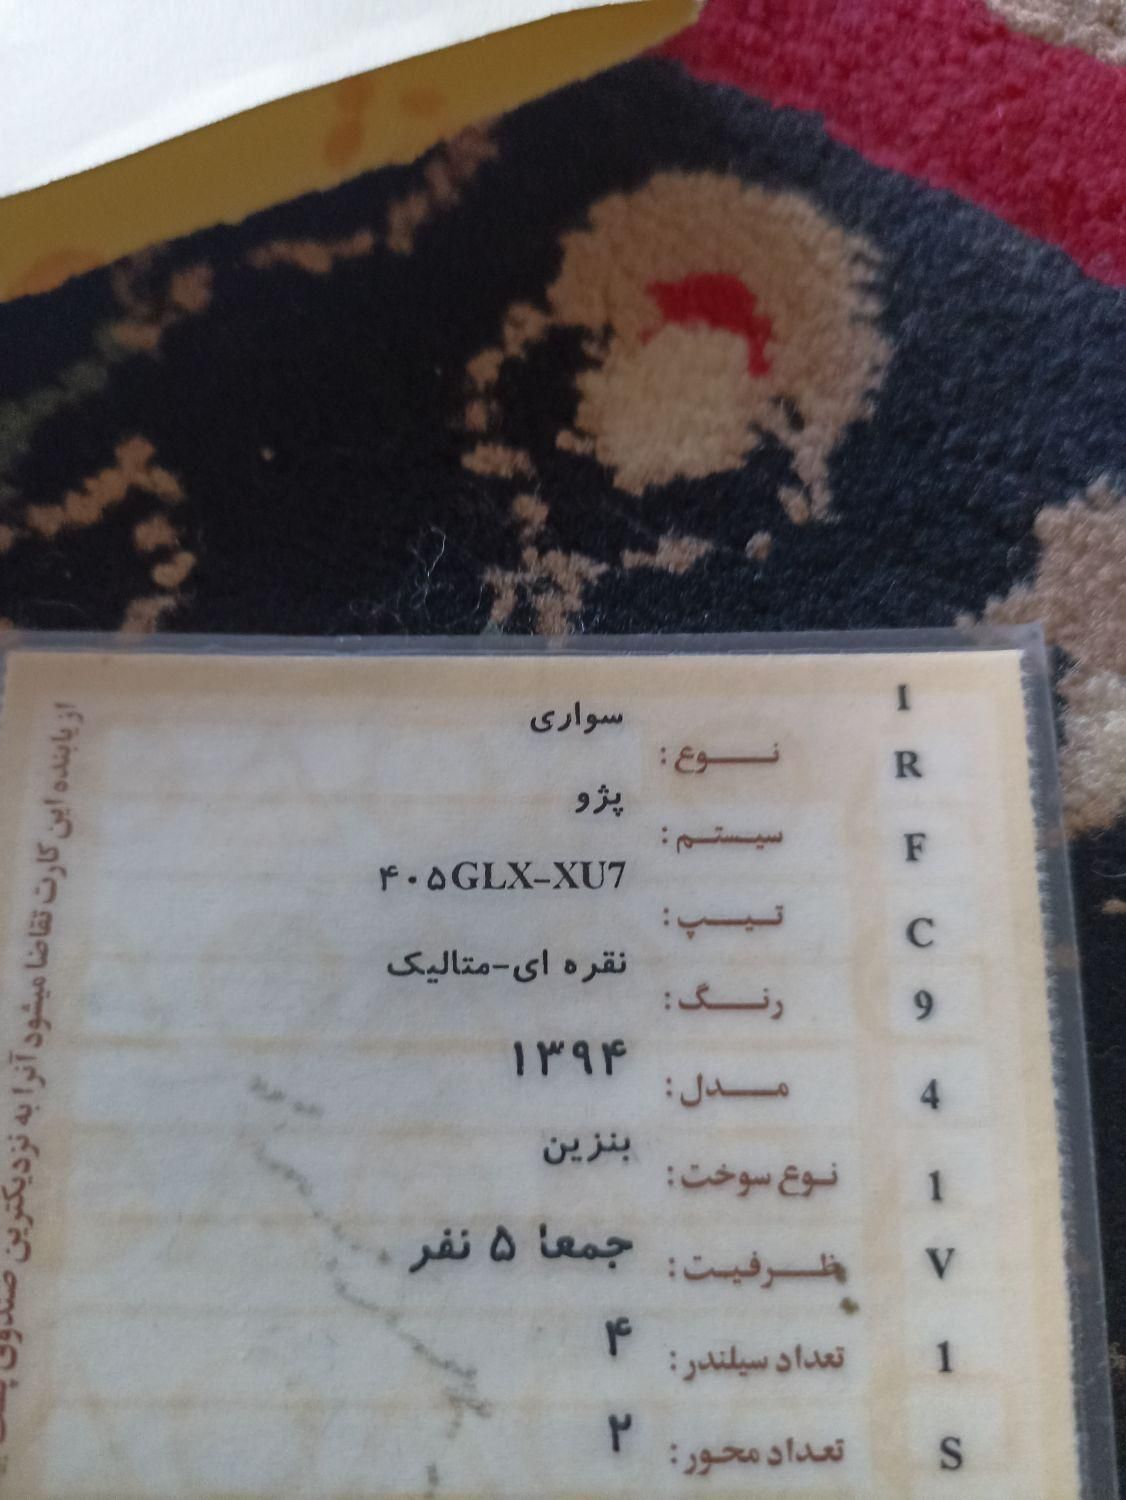 نوع: سواری
سیستم: پژو
تیپ: ۴۰۵GLX-XU7
رنگ: نقره ای-متالیک
مدل: ۱۳۹۴
نوع سوخت: بنزین
ظرفیت: جمعا ۵ نفر
تعداد سیلندر: ۴
تعداد محور: ۲
I
R
F
C
9
4
1
V
1
S
از یابنده این کارت تقاضا میشود آنرا به نزدیکترین صندوق